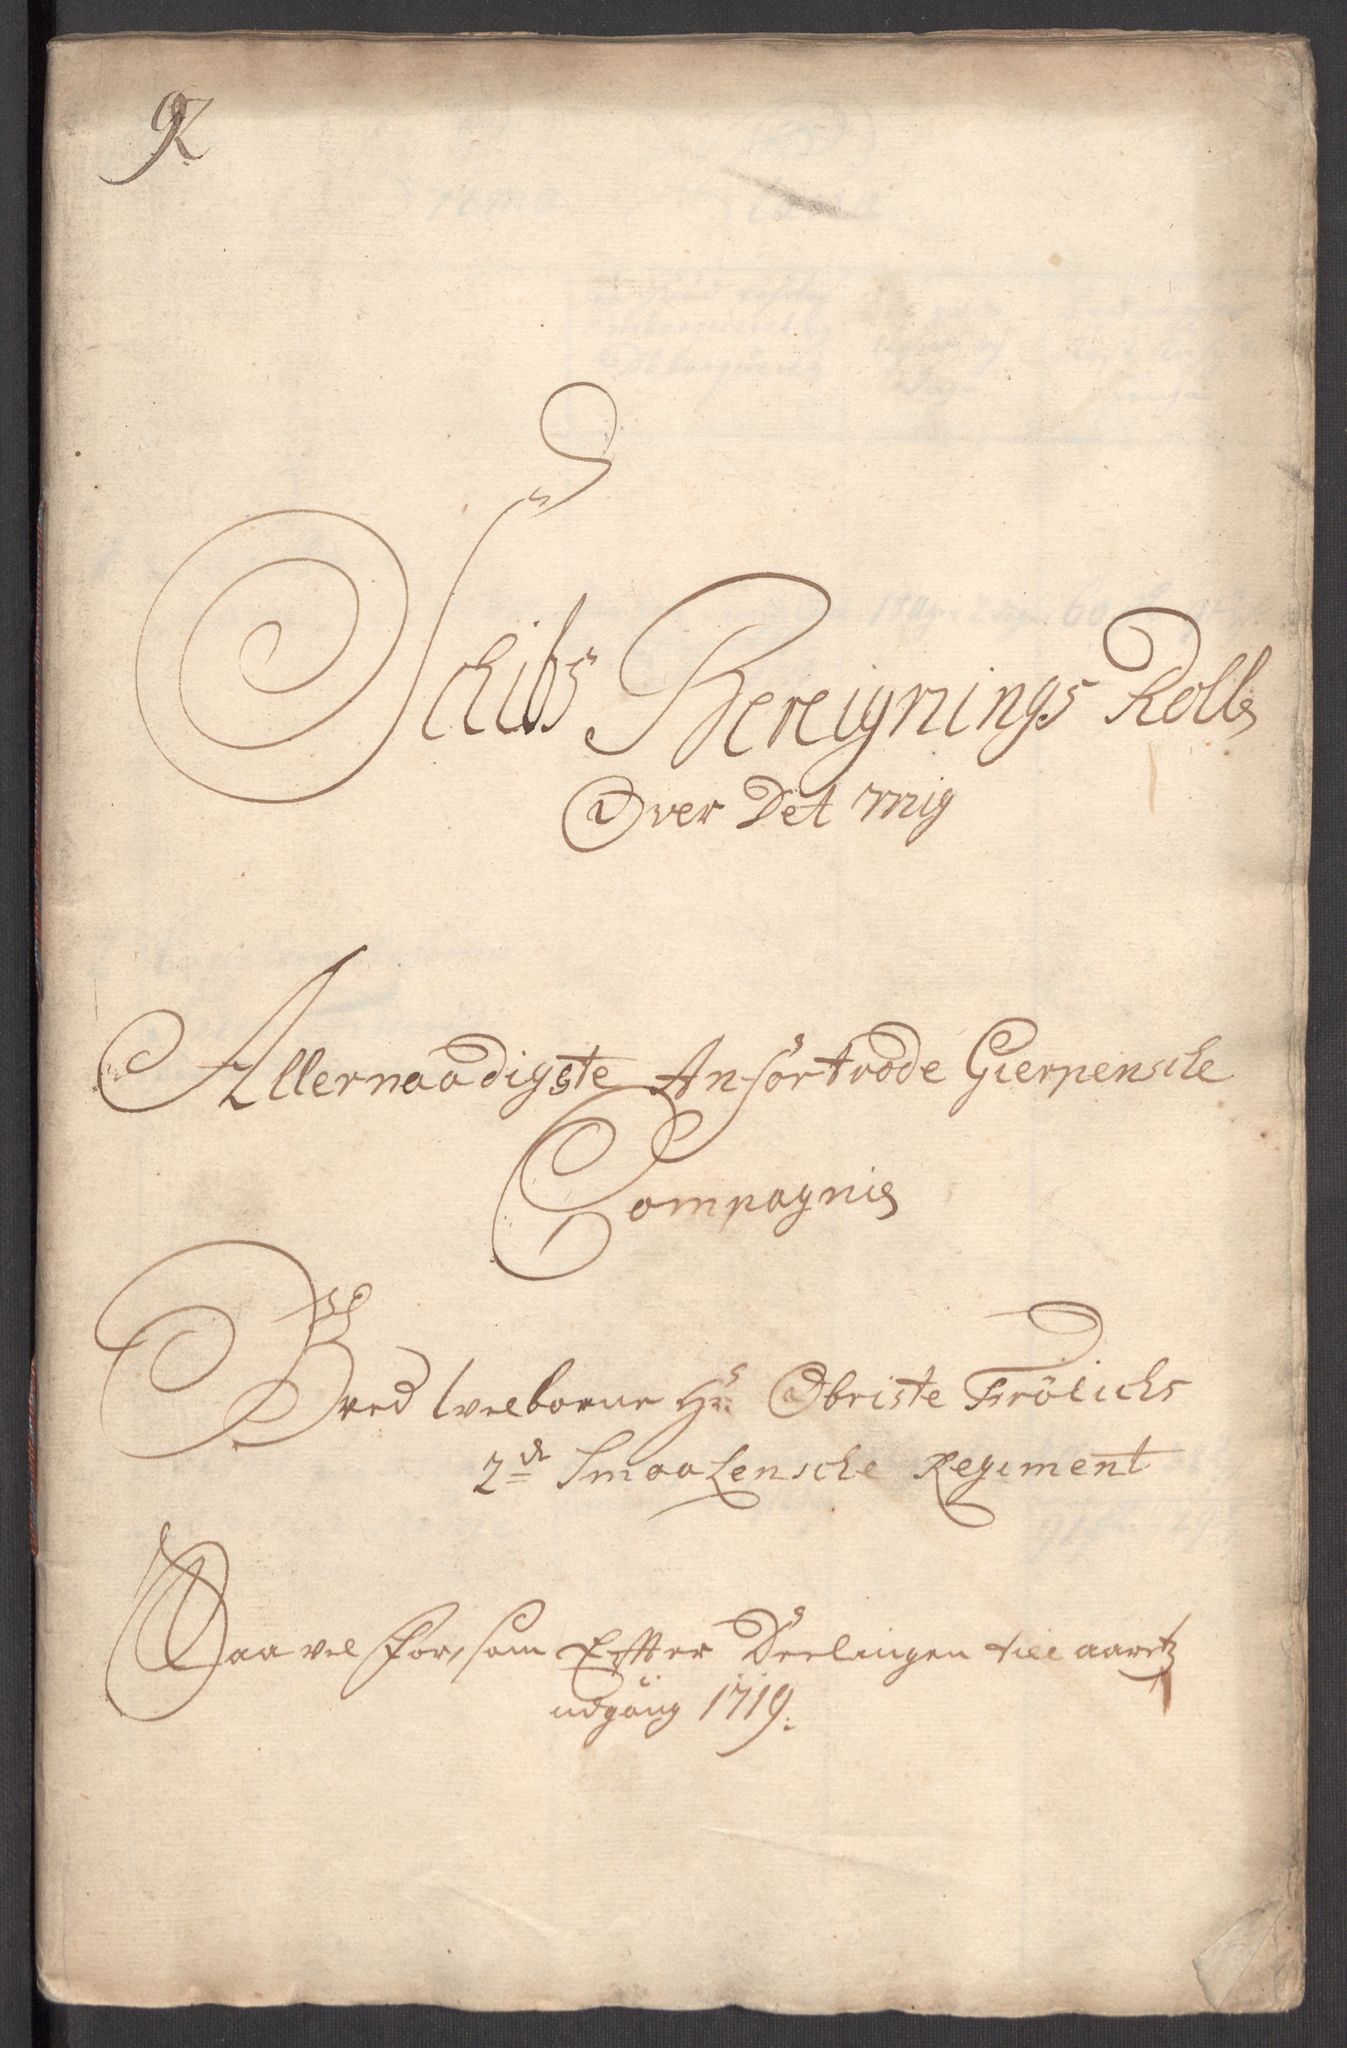 Schibs Bereignings Rolle
Over Det mig
Allernaadigste Anförtrode Gierpensche
Compagnie
Ved Welborne Hr: Obriste Frölichs
2de Smaalensche Regiment
Saavel For, som Effter Deelingen till aaretz
udgang 1719.